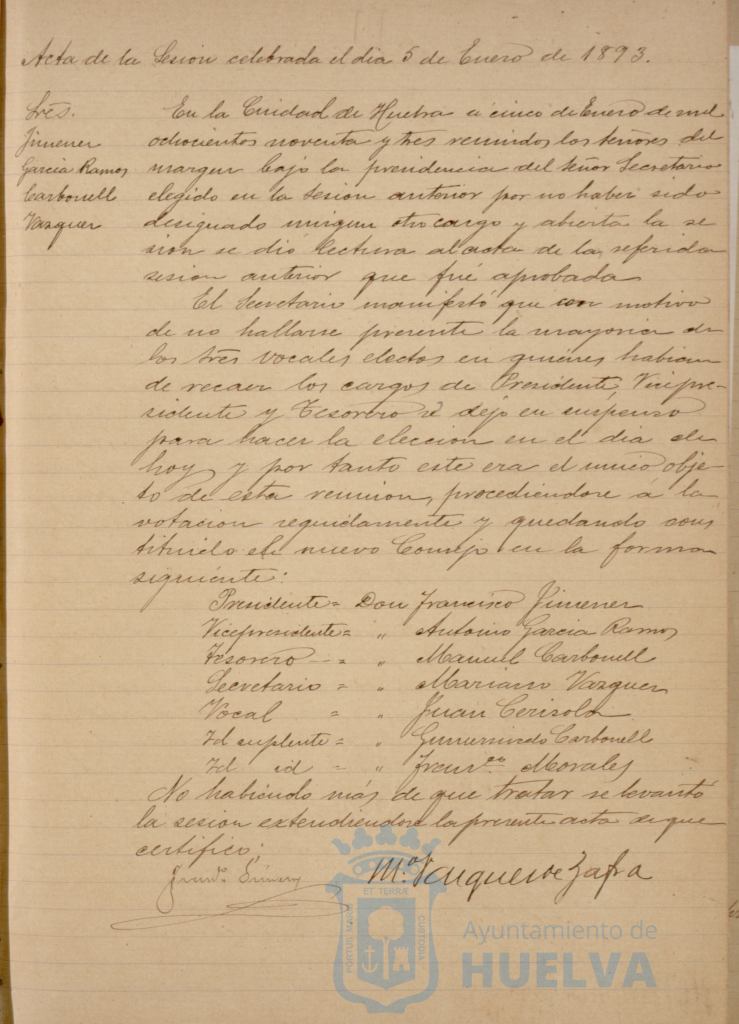 Acta de la Sesion celebrada el dia 5 de Enero de 1893.
Sres.
Jimenez
Garcia Ramos
Carbonell
Vazquez
En la Ciudad de Huelva a cinco de Enero de mil
ochocientos noventa y tres reunidos los señores del
margen bajo la presidencia del señor Secretario
elegido en la sesion anterior por no haber sido
designado ningun otro cargo y abierta la se
sion se dió lectura al acta de la referida
sesion anterior que fué aprobada
El Secretario manifestó que con motivo
de no hallarse presente la mayoria de
los tres vocales electos en quiénes habian
de recaer los cargos de Presidente, Vicepre-
sidente y Tesorero se dejó en suspenso
para hacer la eleccion en el dia de
hoy y por tanto este era el unico obje
to de esta reunion, procediendose á la
votacion seguidamente y quedando cons
tituido el nuevo Consejo en la forma
siguiente:
Presidente = Don Francisco Jimenez
Vicepresidente = " Antonio Garcia Ramos
Tesorero = " Manuel Carbonell
Secretario = " Mariano Vazquez
Vocal = " Juan Cerisola
Id suplente = " Gumersindo Carbonell
Id id = " Franco. Morales
No habiendo más de que tratar se levantó
la sesion extendiendose la presente acta de que
certifico;
Franco. Jimenez
Mo. Vazquez de Zafra
PORTUS MARIS ET TERRÆ CUSTODIA
Ayuntamiento de
HUELVA